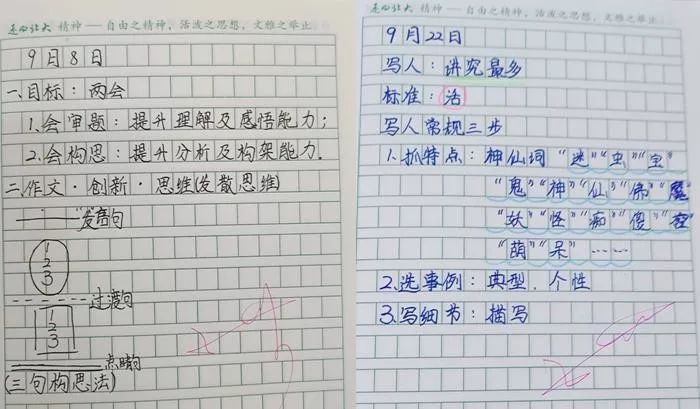 走心北大 精神——自由之精神，活泼之思想，文雅之举止
9月8日
一、目标：两会
1.会审题：提升理解及感悟能力；
2.会构思：提升分析及构架能力.
二、作文·创新·思维(发散思维)
"发"言句
1
2
3
过渡句
1
2
3
点睛句
(三句构思法)
走心北大 精神——自由之精神，活泼之思想，文雅之举止
9月22日
写人：讲究最多
标准：活
写人常规三步
1.抓特点：神仙词"迷""虫""宝"
"鬼""神""仙""佛""魔"
"妖""怪""痴""傻""狂"
"萌""呆"……
2.选事例：典型.个性
3.写细节：描写